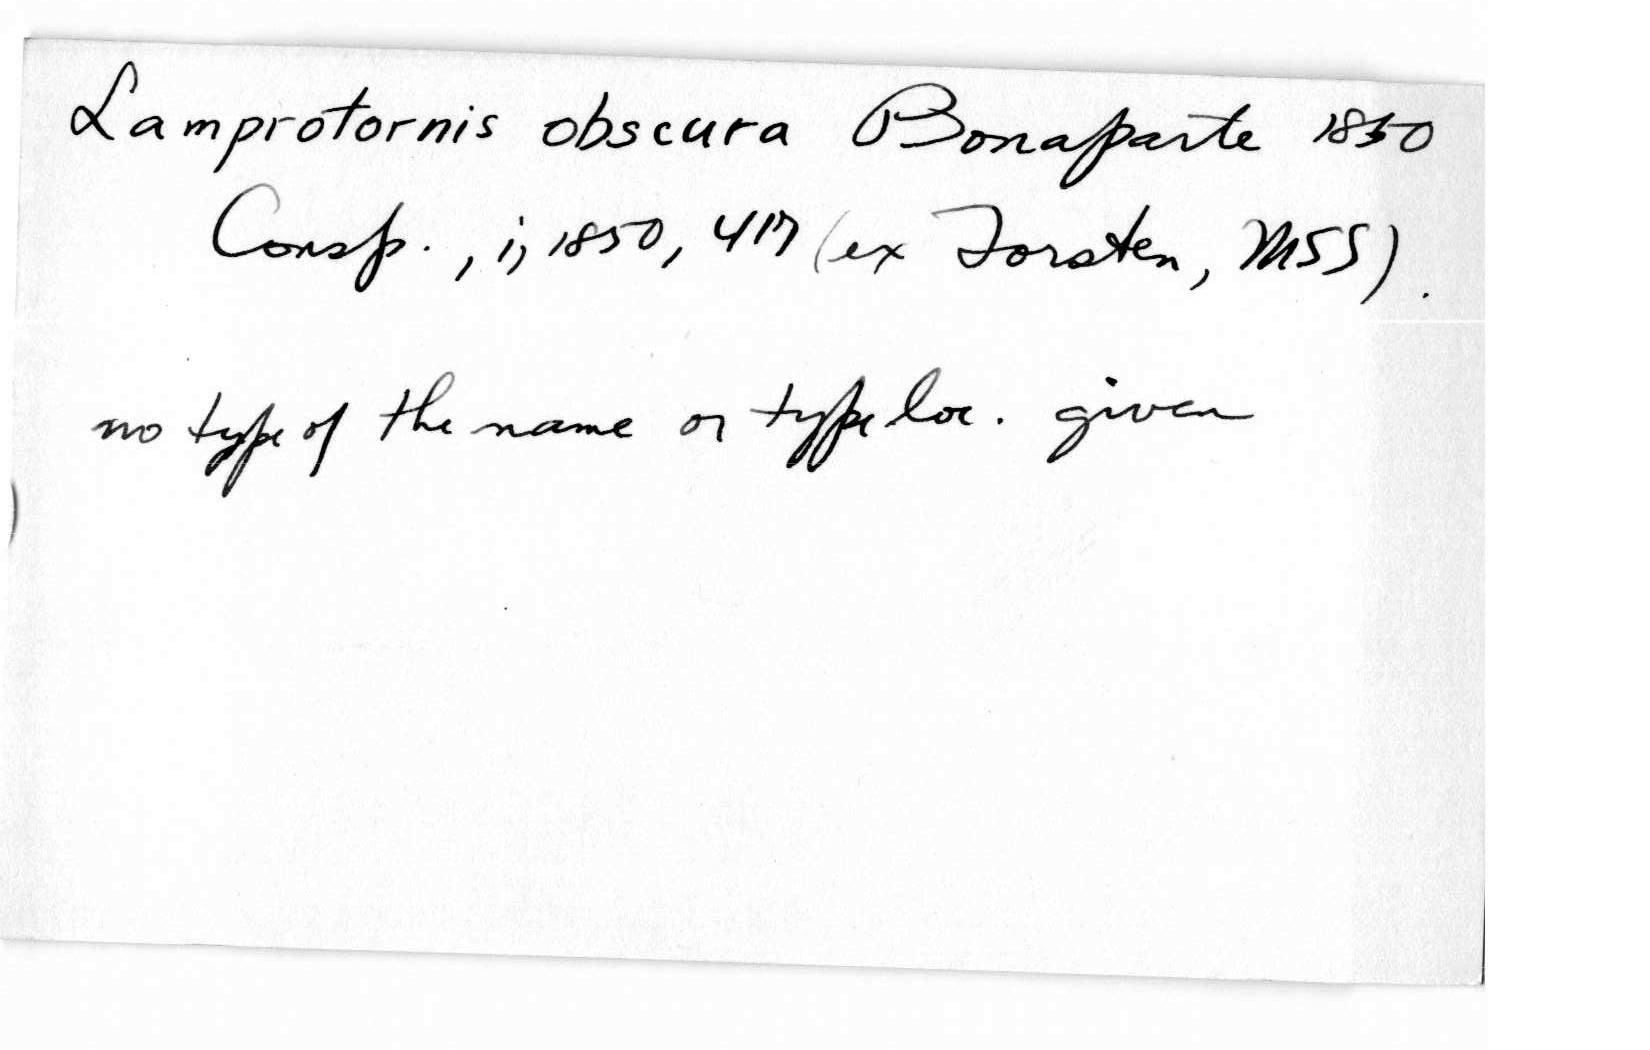 Lamprotornis obscura Bonaparte 1850
Consp., i, 1850, 417 (ex Forsten, MSS).
no type of the name or type loc. given